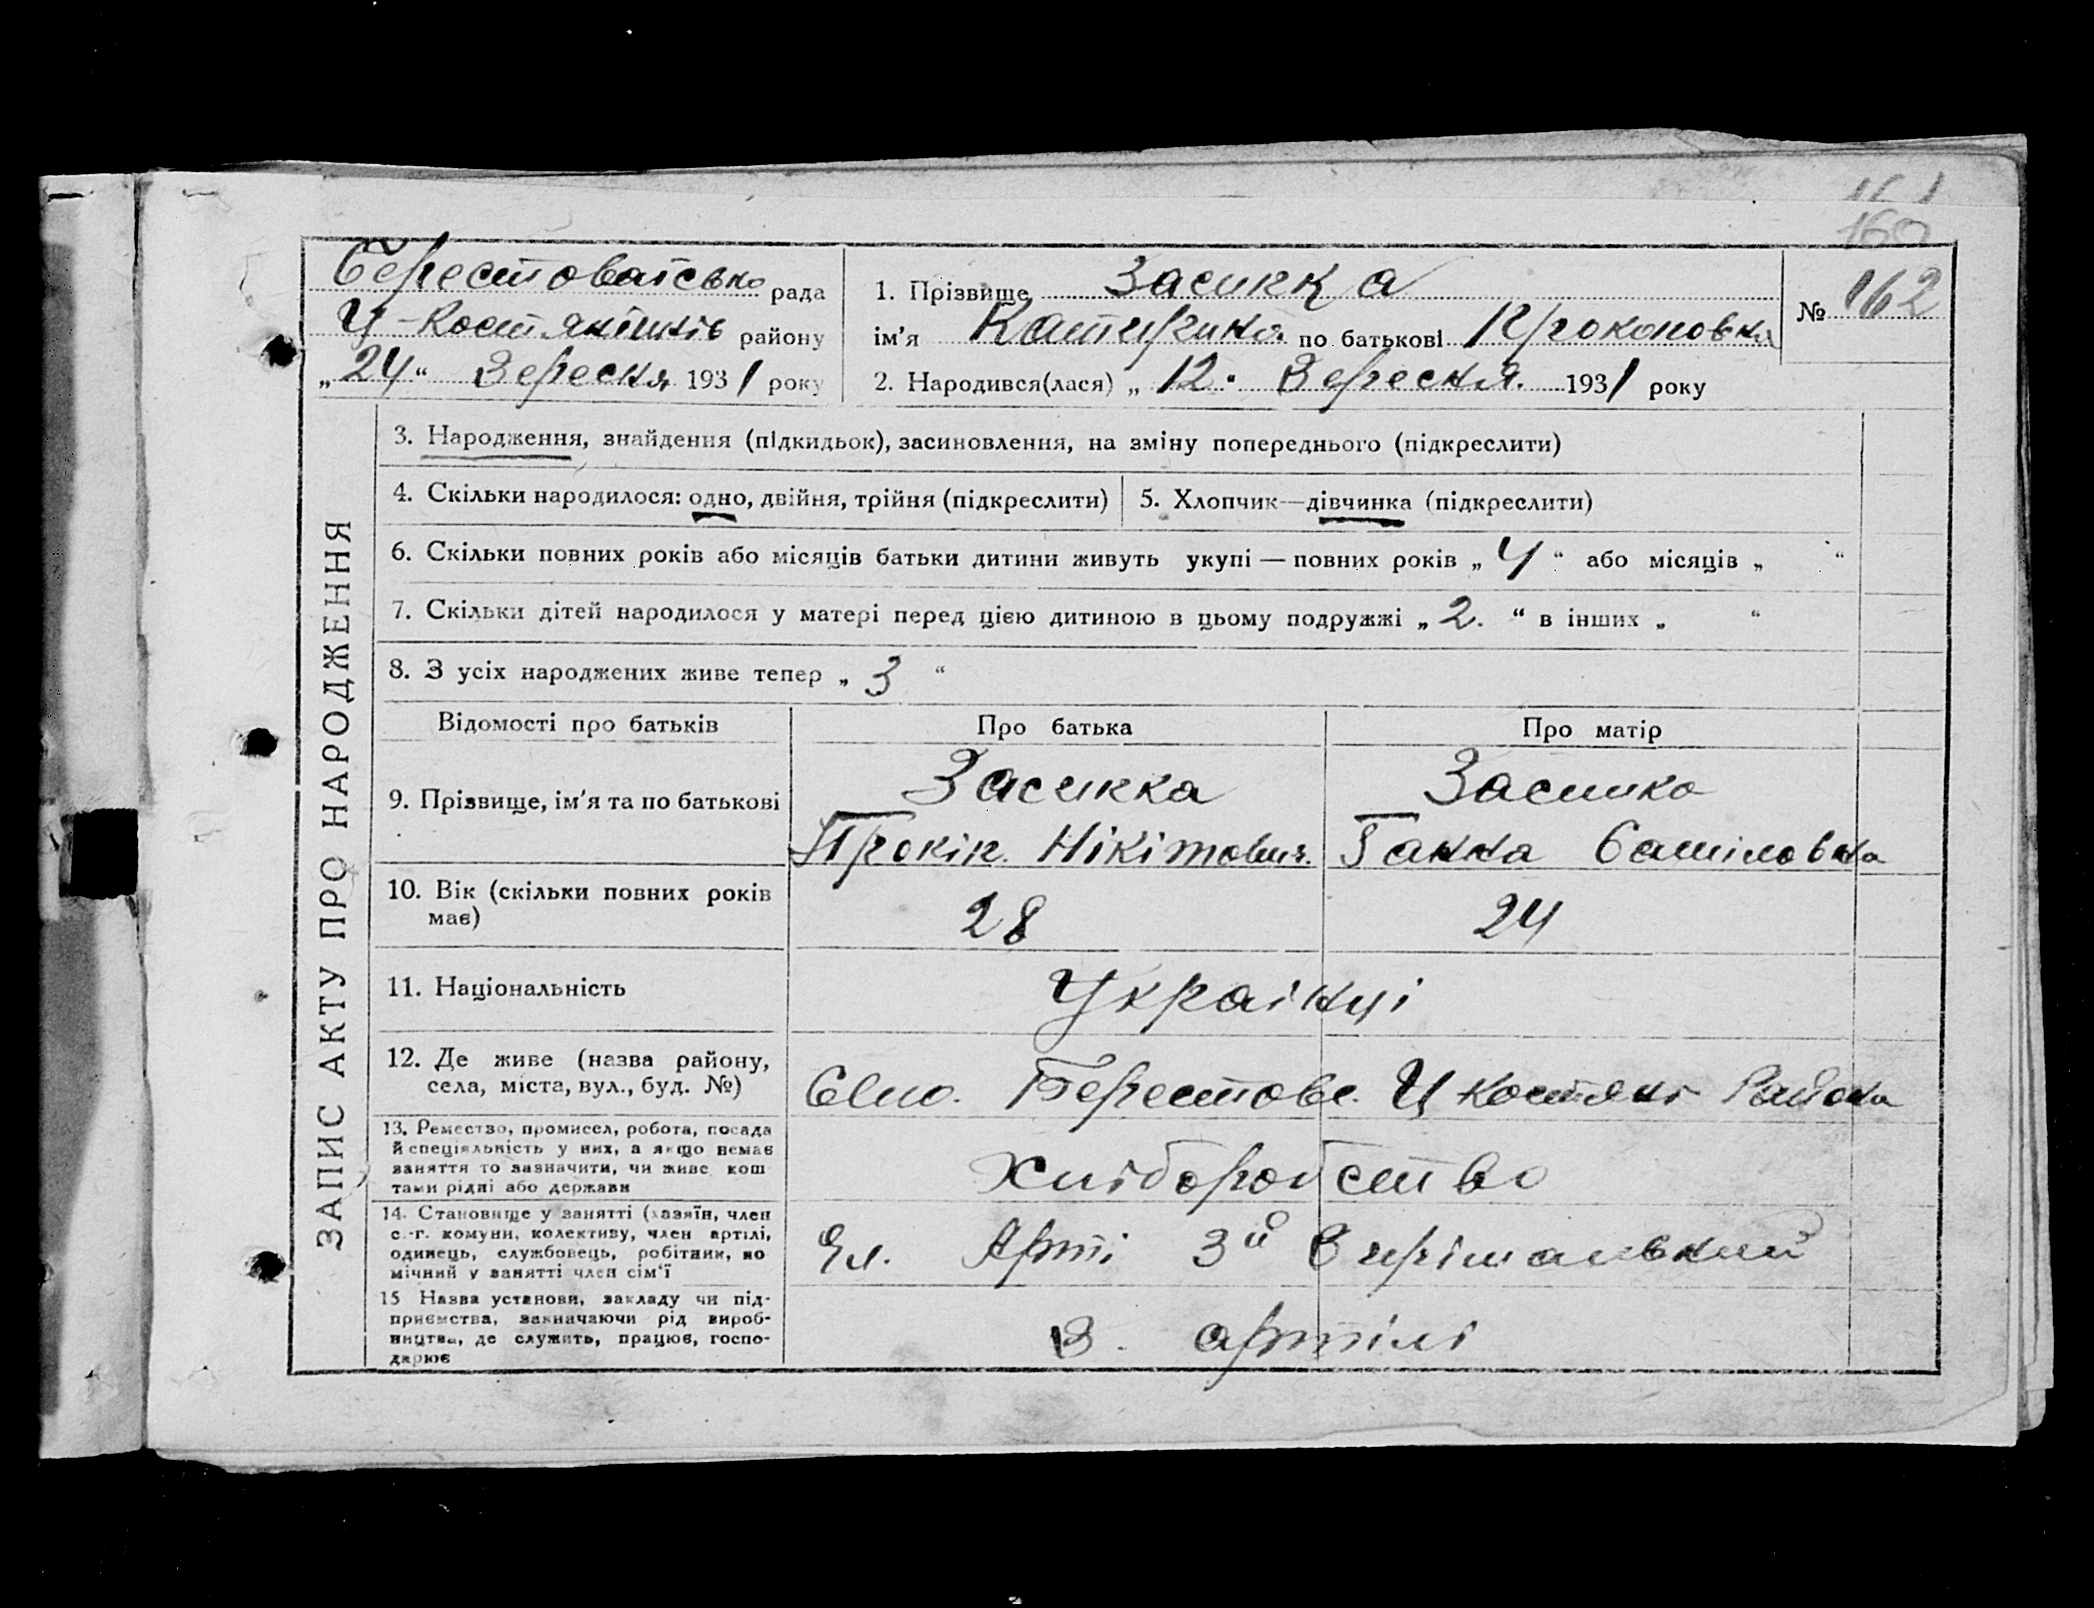 161
160
Берестоватсько рада
Ц-Костянтинів району
„24“ Вересня 1931 року
1. Прізвище Засипка
ім'я Катирина по батькові Прокоповна
№ 162
2. Народився(лася) „12. Вересня. 1931 року
ЗАПИС АКТУ ПРО НАРОДЖЕННЯ
3. Народження, знайдення (підкидьок), засиновлення, на зміну попереднього (підкреслити)
4. Скільки народилося: одно, двійня, трійня (підкреслити)
5. Хлопчик—дівчинка (підкреслити)
6. Скільки повних років або місяців батьки дитини живуть укупі — повних років „4“ або місяців „ “
7. Скільки дітей народилося у матері перед цією дитиною в цьому подружжі „2. “ в інших „ “
8. З усіх народжених живе тепер „3 “
Відомості про батьків
Про батька
Про матір
9. Прізвище, ім'я та по батькові
Засипка
Прокіп. Нікітович.
Засипка
Ганна
10. Вік (скільки повних років
має)
28
24
11. Національність
Українці
12. Де живе (назва району,
села, міста, вул., буд. №)
Село. Берестове. Ц Костянт Района
13. Ремество, промисел, робота, посада
й спеціяльність у них, а якщо немає
заняття то зазначити, чи живе кош
тами рідні або держави
Хліборобство
14. Становище у занятті (хазяїн, член
с.-г. комуни, колективу, член артілі,
одинець, службовець, робітник, по
мічний у занятті член сім'ї
Чл. Арті 3й
15 Назва установи, закладу чи під-
приємства, зазначаючи рід вироб-
ництва, де служить, працює, госпо-
дарює
В. артілі